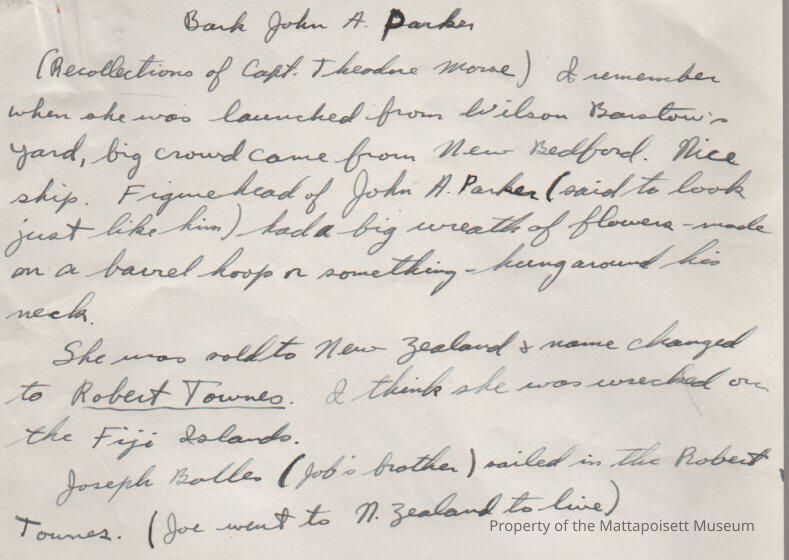 Bark John A. Parker
(Recollections of Capt. Theodore Morse) I remember
when she was launched from Wilson Barstow's
yard, big crowd came from New Bedford. Nice
ship. Figurehead of John A. Parker (said to look
just like him) had a big wreath of flowers - made
on a barrel hoop or something - hung around his
neck.
She was sold to New Zealand & name changed
to Robert Townes. I think she was wrecked on
the Fiji Islands.
Joseph Bolles (Job's brother) sailed in the Robert
Townes. (Joe went to N. Zealand to live)
Property of the Mattapoisett Museum